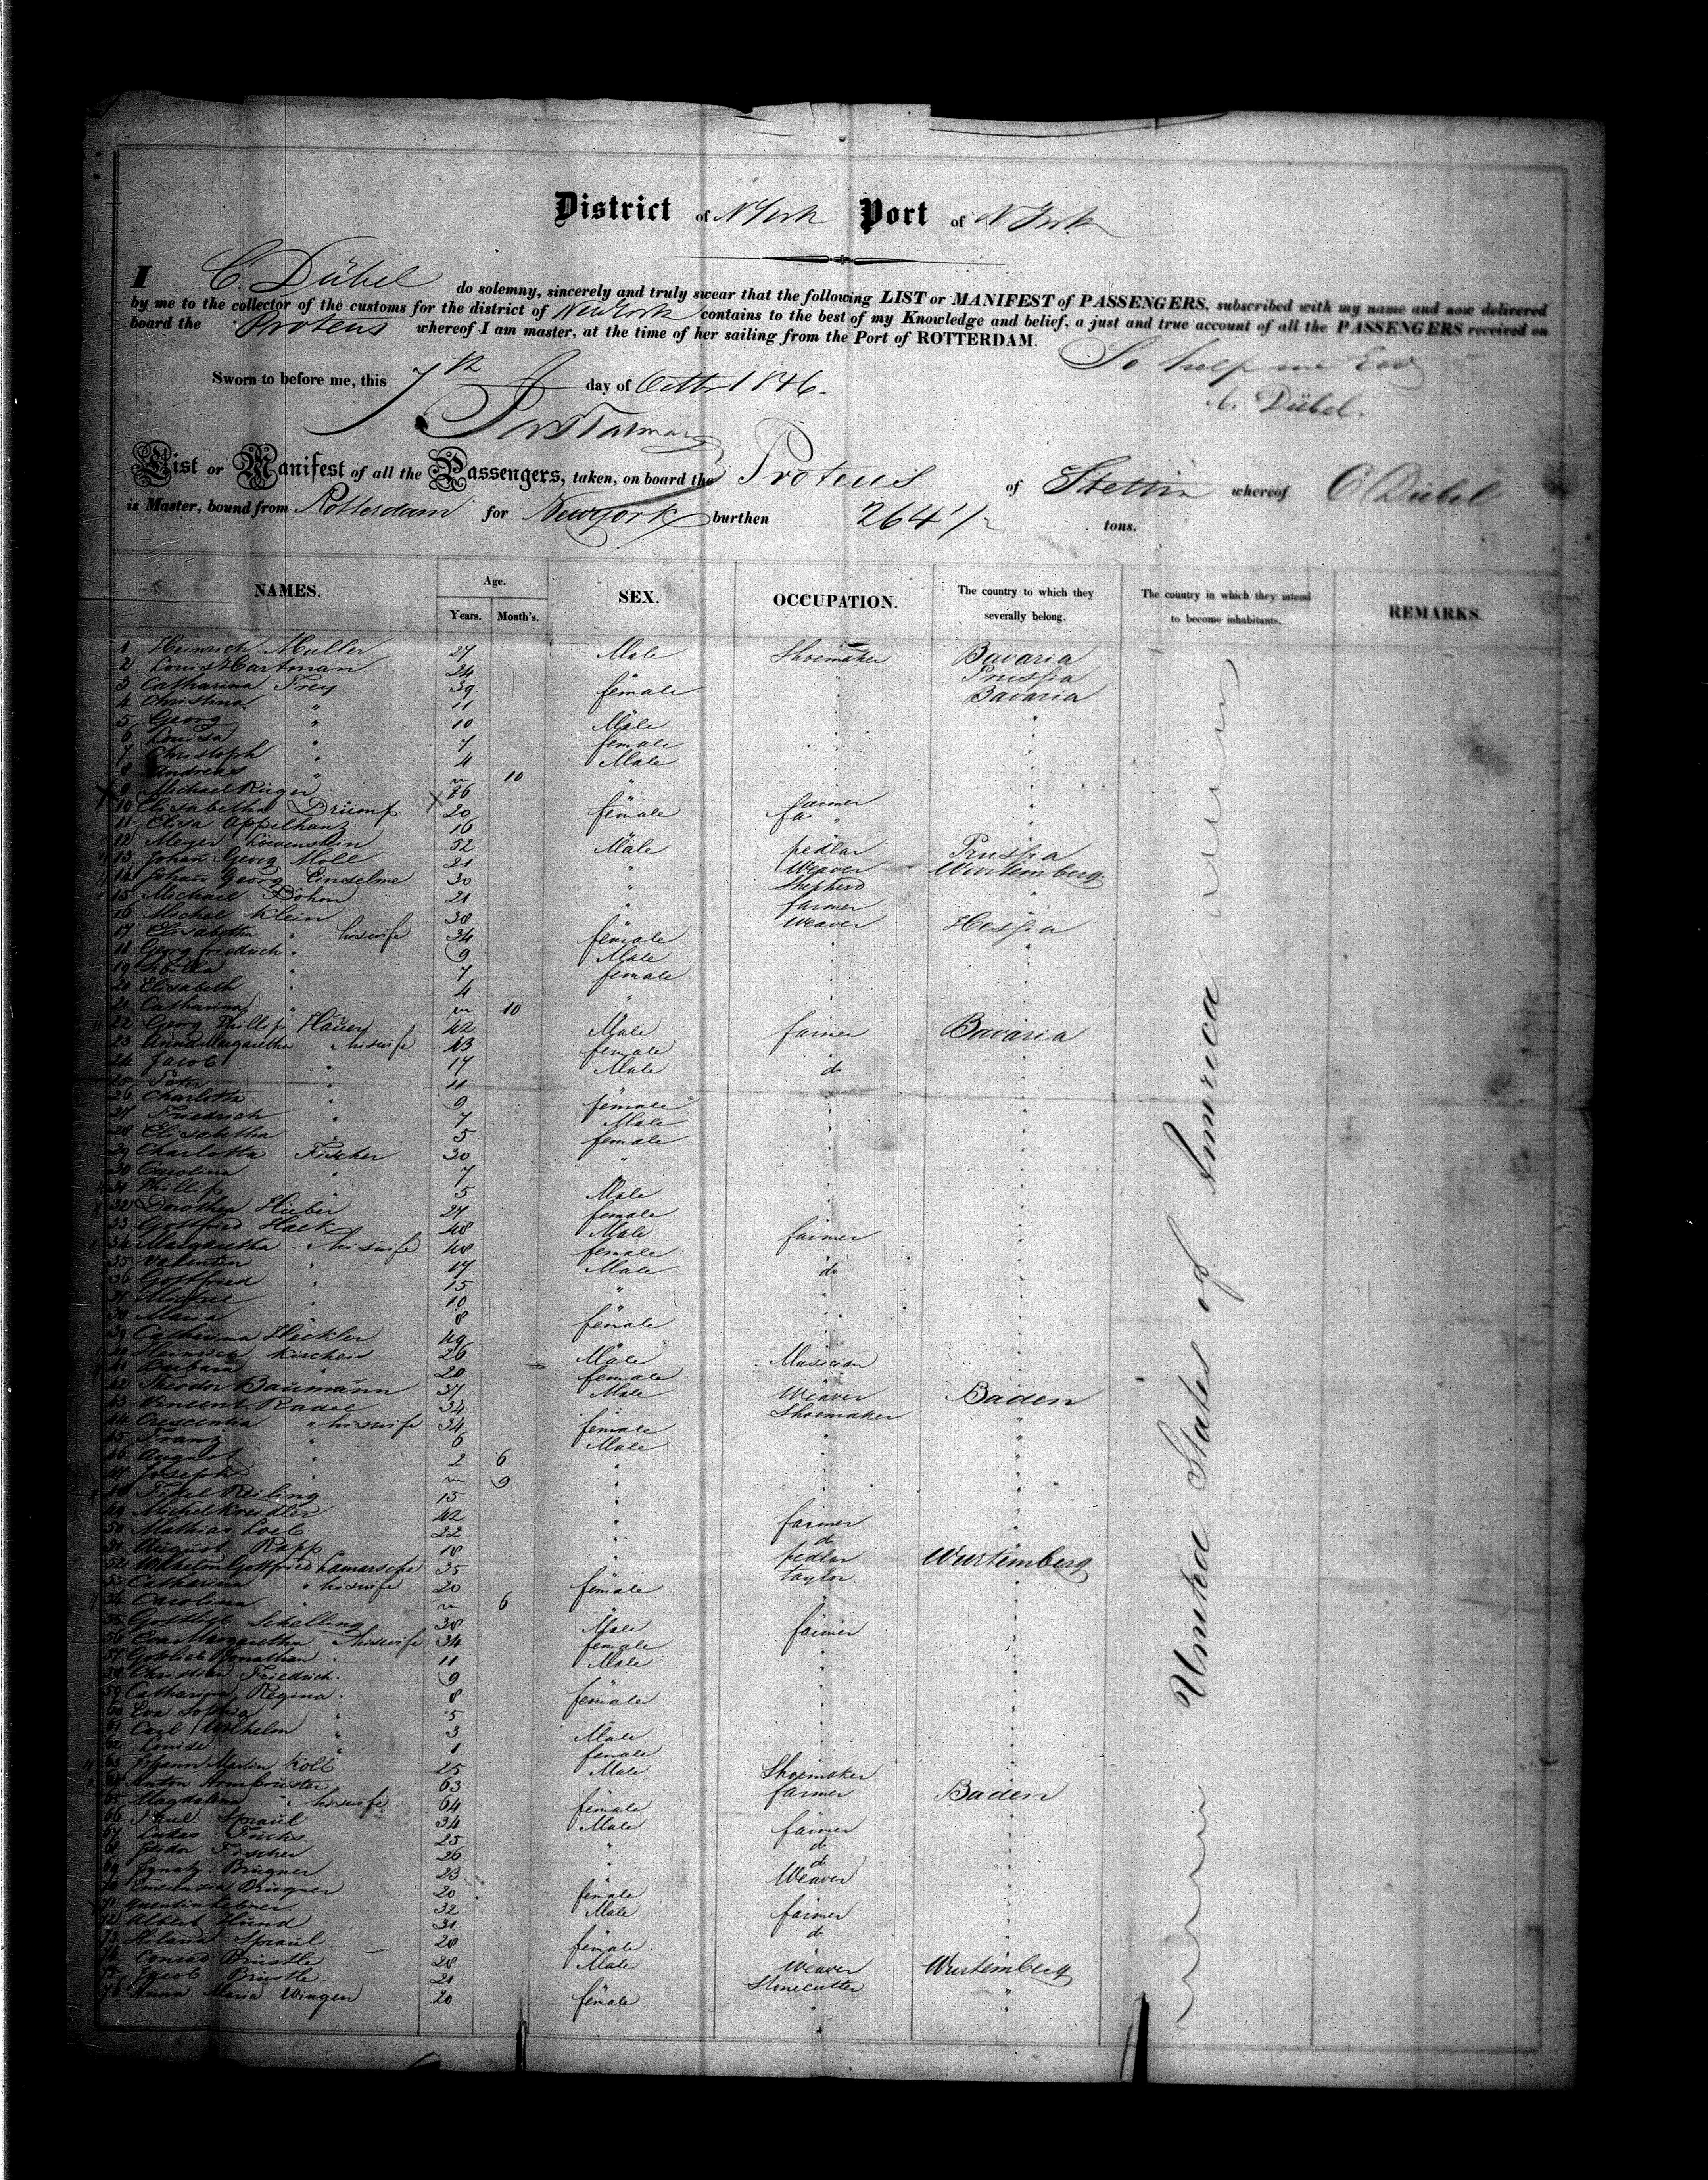 District of N York Port of N York
I C. Dübel do solemny, sincerely and truly swear that the following LIST or MANIFEST of PASSENGERS, subscribed with my name and now delivered
by me to the collector of the customs for the district of New York contains to the best of my Knowledge and belief, a just and true account of all the PASSENGERS received on
board the Proteus whereof I am master, at the time of her sailing from the Port of ROTTERDAM.
So help me God
Sworn to before me, this 7th day of Octbr 1846.
C. Dübel.
List or Manifest of all the Passengers, taken, on board the Proteus of Stettin whereof C Dübel
is Master, bound from Rotterdam for New York burthen 264 1/2 tons.
NAMES. Age. Years. Month's. SEX. OCCUPATION. The country to which they severally belong. The country in which they intend to become inhabitants. REMARKS.
United States of America
1 Heinrich Muller 27 Male Shoemaker Bavaria
2 Louis Hartman 24 Prussia
3 Catharina Frey 39 female Bavaria
4 Christina " 11
5 Georg " 10 Male
6 Louisa " 7 female
7 Christoph " 4 Male
8 Andreas " 10 "
9 Michael Rüger 26 farmer
10 Elisabetha Drümp 20 female
11 Elisa Appelhanz 16
12 Meyer Löwenstein 52 Male pedlar Prussia
13 Johan Georg Moll 21 " Weaver Wurtemberg
14 Johann Georg Einselme 30 " Shepherd "
15 Michael Döhm 21 " farmer
16 Michel Klein 38 weaver Hessia
17 Elisabetha " his wife 34 female
18 Georg Friedrich " 9 Male
19 Sibilla " 7 female
20 Elisabeth " 4
21 Catharina " 10 "
22 Georg Phillip Hauer 42 Male farmer Bavaria
23 Anna Margaretha " his wife 43 female
24 Jacob " 17 Male do
25 Peter " 11
26 Charlotta " 9 female
27 Friedrich " 7 Male
28 Elisabetha " 5 female
29 Charlotta Fischer 30 "
30 Carolina " 7 "
31 Phillip " 5 Male
32 Dorothea Hieber 27 female
33 Gottfried Hack 48 Male farmer
34 Margaretha " his wife 48 female
35 Valentin " 17 Male do
36 Gottfried " 15 "
37 Michel " 10
38 Maria " 8 female
39 Catharina Heckler 49
40 Heinrich 26 Male Musician
41 Barbara " 20 female
42 Theodor Baumann 37 Male Weaver Baden
43 Vincent 34 Shoemaker
44 Crescentia " his wife 34 female
45 Franz " 6 Male
46 August " 2 6
47 Joseph " 9
48 Fidel Reiling 15
49 Michel Kreidler 42 farmer
50 Mathias Loeb 22 do
51 August Rapp 18 pedlar Wurtemberg
52 Wilhelm Gottfried 35 taylor
53 Catharina " his wife 20 female
54 Carolina " 6
55 Gottlieb Schelling 38 Male farmer
56 Eva Margaretha " his wife 34 female
57 Gotlieb Jonathan " 11 Male
58 Christian Friedrich " 9
59 Catharina Regina " 8 female
60 Eva Sophia " 5
61 Carl Wilhelm " 3 Male
62 Louise " 1 female
63 Johann Martin Kolb 25 Male Shoemaker
64 Anton Armbruster 63 farmer Baden
65 Magdalena " his wife 64 female
66 Paul Spraul 34 Male farmer
67 Lukas Fuchs 25 do
68 Isidor Fischer 26 do
69 Ignatz Brugner 23 Weaver
70 Brugner 20 female
71 32 Male farmer
72 Albert Hund 31 do
73 Spraul 28 female
74 Conrad Brüstle 28 Male weaver Wurtemberg
75 Jacob Brüstle 21 Stonecutter "
76 Anna Maria Wingen 20 female " "